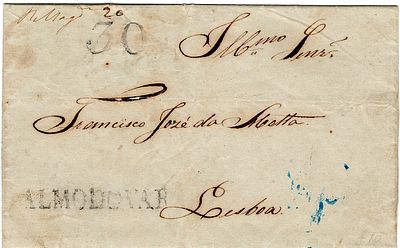 20
30
Ill.mo Senr.
Francisco José da Motta.
ALMODOVAR
Lisboa.